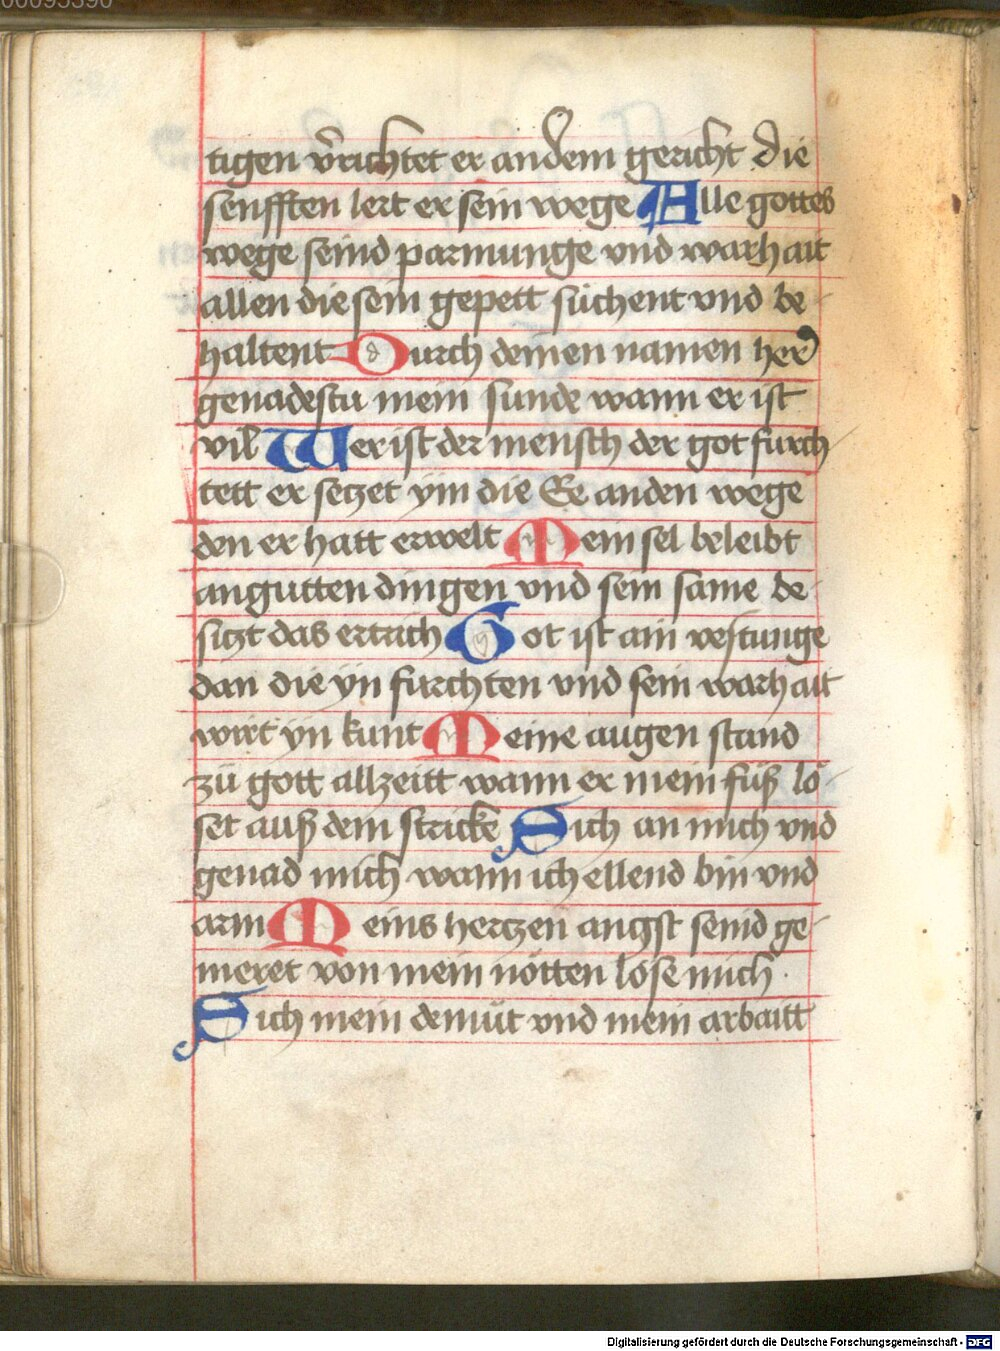 00095390
tigen v̄richtet er an dem gericht Die
senfften lert er sein wege Alle gottes
wege seind parmunge vnd warhait
allen die sein gepett sůchent vnd be-
haltent Durch deinen namen her
genadestu mein sunde wann er ist
vil Wer ist der mensch der got furch-
tett er seczet ym die Ee an den wege
den er hatt erwelt Mein sel beleibt
an gutten dingen vnd sein same be-
siczt das ertrich Got ist ain vestunge
dan die yn furchten vnd sein warhait
wirt yn kunt Meine augen stand
zů gott allzeitt wann er mein fůß lö-
set auß dem stricke Sich an mich vnd
genad mich wann ich ellend bin vnd
arm Meins hertzen angst seind ge-
meret von mein nötten löse mich
Sich mein demůt vnd mein arbaitt
Digitalisierung gefördert durch die Deutsche Forschungsgemeinschaft - DFG